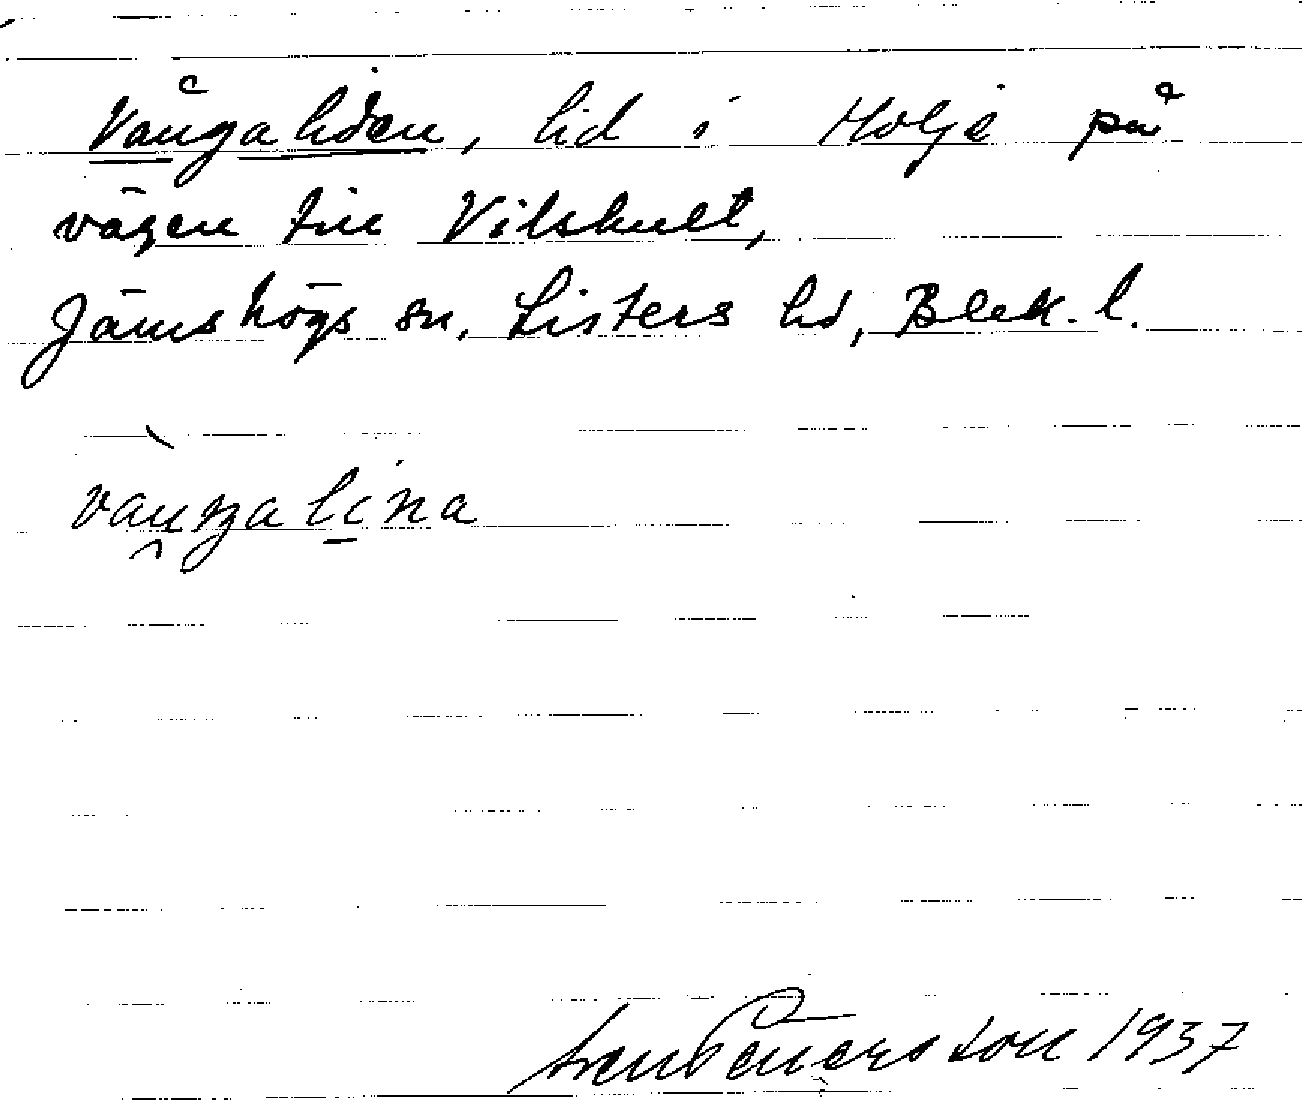 Vångaliden, lid i Holje på
vägen till Vilshult,
Jämshögs sn, Listers hd, Blek. l.
vaŋgalina
1937